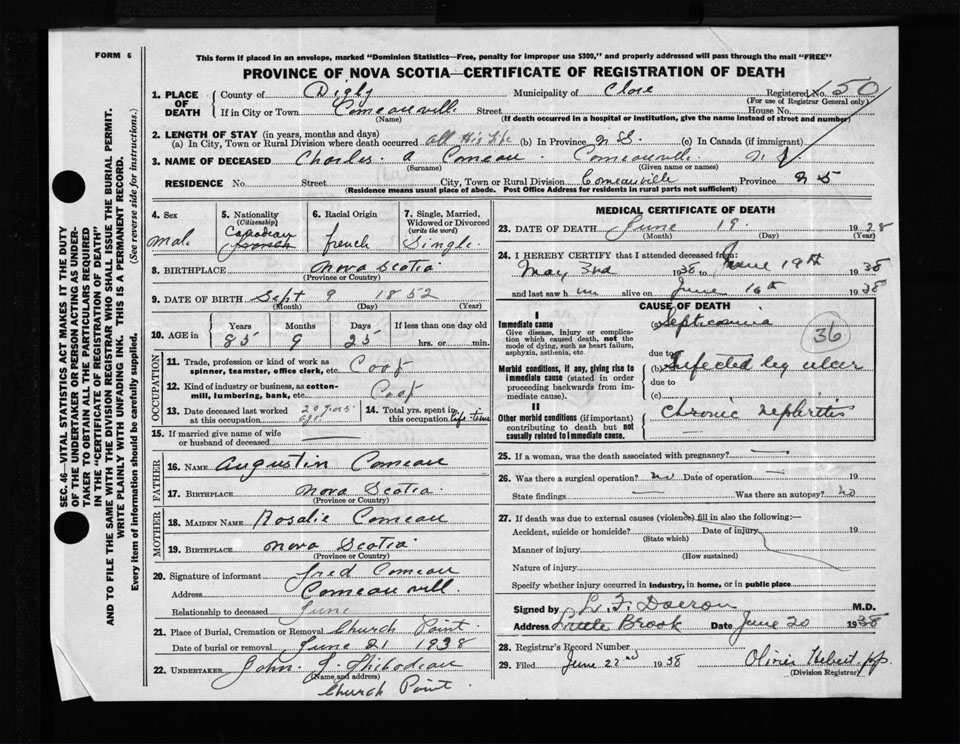 FORM 6
This form if placed in an envelope, marked "Dominion Statistics—Free, penalty for improper use $300," and properly addressed will pass through the mail "FREE"
PROVINCE OF NOVA SCOTIA—CERTIFICATE OF REGISTRATION OF DEATH
SEC. 46—VITAL STATISTICS ACT MAKES IT THE DUTY
OF THE UNDERTAKER OR PERSON ACTING AS UNDER-
TAKER TO OBTAIN ALL THE PARTICULARS REQUIRED
IN THE "CERTIFICATE OF REGISTRATION OF DEATH"
AND TO FILE THE SAME WITH THE DIVISION REGISTRAR WHO SHALL ISSUE THE BURIAL PERMIT.
WRITE PLAINLY WITH UNFADING INK. THIS IS A PERMANENT RECORD.
Every item of information should be carefully supplied. (See reverse side for instructions.)
1. PLACE OF DEATH County of Digby Municipality of Clare Registered No. 650
(For use of Registrar General only)
If in City or Town Comeauville Street House No.
(Name) (If death occurred in a hospital or institution, give the name instead of street and number)
2. LENGTH OF STAY (in years, months and days)
(a) In City, Town or Rural Division where death occurred all His life (b) In Province N S. (c) In Canada (if immigrant)
3. NAME OF DECEASED Charles. a Comeau. Comeauville
(Surname) (Given name or names)
RESIDENCE No. Street City, Town or Rural Division Comeauville Province N S
(Residence means usual place of abode. Post Office Address for residents in rural parts not sufficient)
4. Sex Male
5. Nationality (Citizenship) Canadian
6. Racial Origin french
7. Single, Married, Widowed or Divorced (write the word) Single.
8. BIRTHPLACE Nova Scotia
(Province or Country)
9. DATE OF BIRTH Sept 9 1852
(Month) (Day) (Year)
10. AGE in Years 85 Months 9 Days 25 If less than one day old hrs. or min.
OCCUPATION
11. Trade, profession or kind of work as spinner, teamster, office clerk, etc.
12. Kind of industry or business, as cotton-mill, lumbering, bank, etc.
13. Date deceased last worked at this occupation 20 years ago
14. Total yrs. spent in this occupation life-time
15. If married give name of wife or husband of deceased
FATHER
16. NAME Augustin Comeau
17. BIRTHPLACE Nova Scotia.
(Province or Country)
MOTHER
18. MAIDEN NAME Rosalie Comeau
19. BIRTHPLACE Nova Scotia
(Province or Country)
20. Signature of informant Fred Comeau
Address Comeauvill.
Relationship to deceased
21. Place of Burial, Cremation or Removal Church Point.
Date of burial or removal June 21 1938
22. UNDERTAKER John. Thibodeau
(Name and address)
Church Point.
MEDICAL CERTIFICATE OF DEATH
23. DATE OF DEATH June 19. 1938
(Month) (Day) (Year)
24. I HEREBY CERTIFY that I attended deceased from:
May 3rd 1938 to June 19th 1938
and last saw him alive on June 16th 1938
CAUSE OF DEATH
I
Immediate cause
Give disease, injury or complication which caused death, not the mode of dying, such as heart failure, asphyxia, asthenia, etc.
(a) Septicemia
36
due to
Morbid conditions, if any, giving rise to immediate cause (stated in order proceeding backwards from immediate cause).
(b) Infected leg ulcer
due to
(c)
II
Other morbid conditions (if important) contributing to death but not causally related to immediate cause.
Chronic nephritis
25. If a woman, was the death associated with pregnancy?
26. Was there a surgical operation? no Date of operation 19
State findings Was there an autopsy? no
27. If death was due to external causes (violence) fill in also the following:—
Accident, suicide or homicide? Date of injury 19
(State which)
Manner of injury
(How sustained)
Nature of injury
Specify whether injury occurred in industry, in home, or in public place
Signed by M.D.
Address Little Brook Date June 20 1938
28. Registrar's Record Number
29. Filed June 22nd 1938 Olivier Hebert
(Division Registrar)